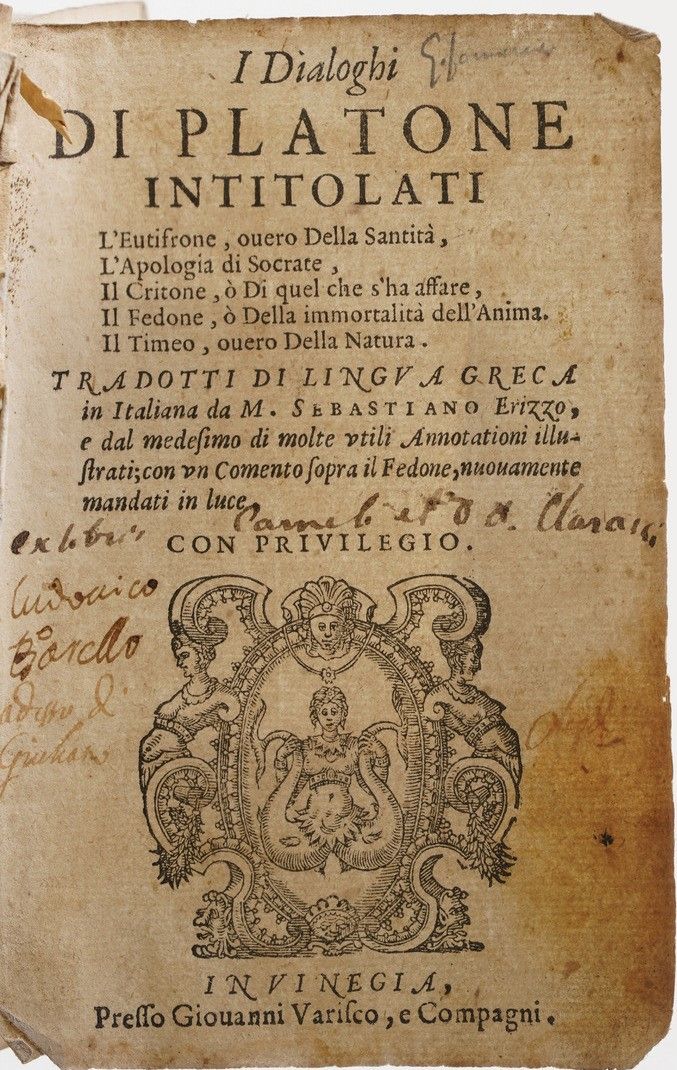 I Dialoghi
DI PLATONE
INTITOLATI
L'Eutifrone, ouero Della Santità,
L'Apologia di Socrate,
Il Critone, ò Di quel che s'ha affare,
Il Fedone, ò Della immortalità dell'Anima.
Il Timeo, ouero Della Natura.
TRADOTTI DI LINGVA GRECA
in Italiana da M. SEBASTIANO Erizzo,
e dal medesimo di molte vtili Annotationi illu-
ſtrati; con vn Comento ſopra il Fedone, nuouamente
mandati in luce.
ex libris
CON PRIVILEGIO.
Ludouico
Borello
IN VINEGIA,
Preſſo Giouanni Variſco, e Compagni.